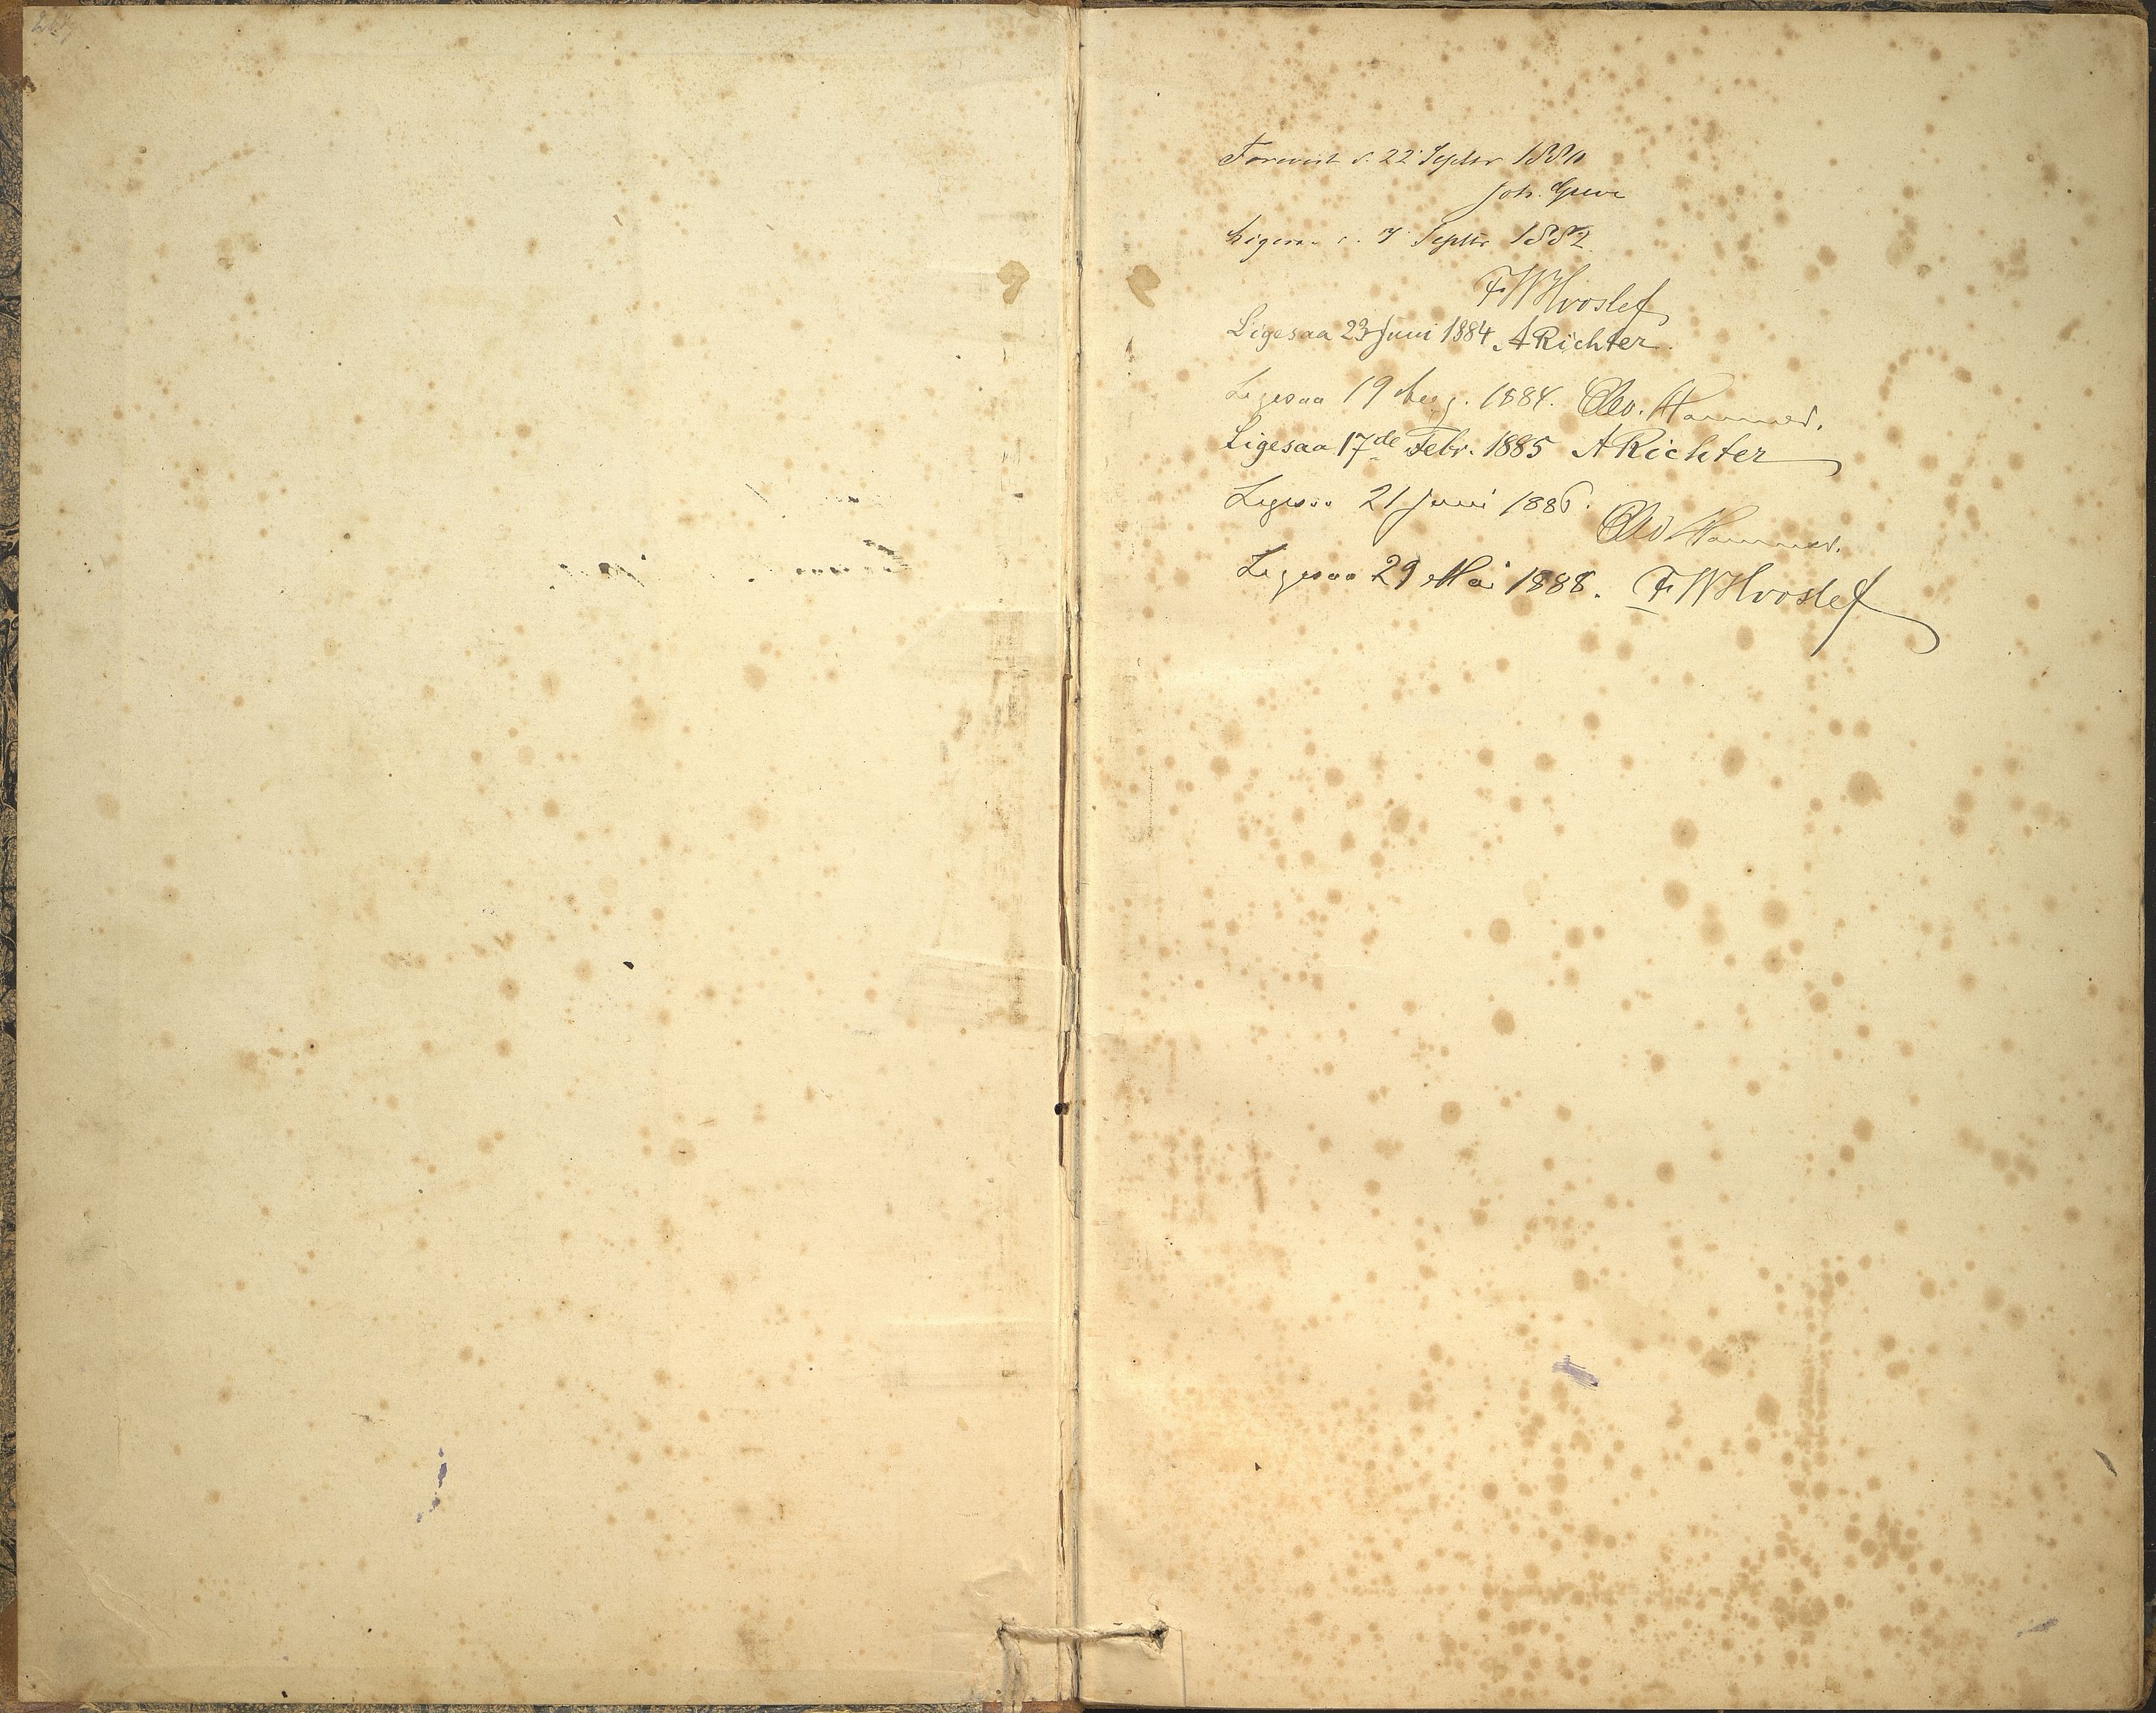 Forevist d. 22 Septbr 1880
Joh. Greve
Ligesaa d. 7 Septbr 1882
FWHvoslef
Ligesaa 23 Juni 1884 ARichter.
Ligesaa 19 Aug. 1884. Olav. Hammer.
Ligesaa 17de Febr. 1885 ARichter
Ligesaa 21 Juni 1886.
Hammer.
Ligesaa 29 Mai 1888. FWHvoslef